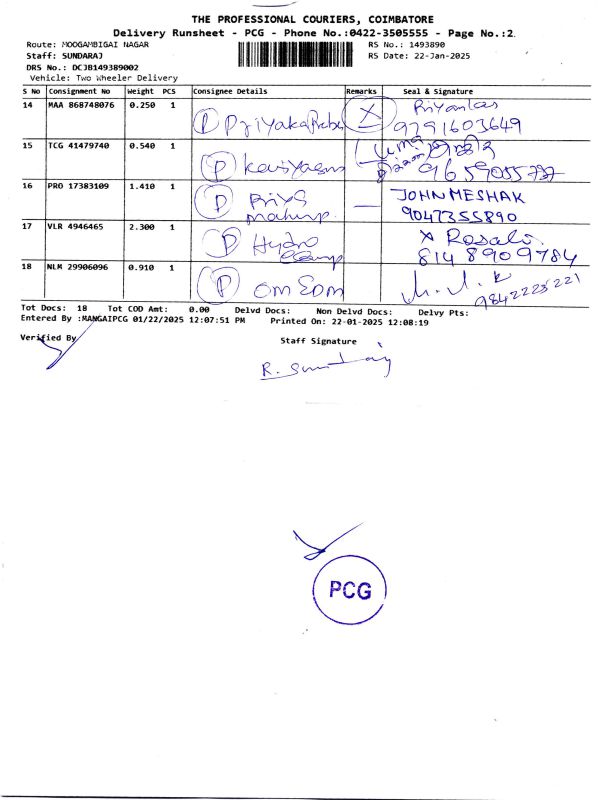 THE PROFESSIONAL COURIERS, COIMBATORE
Delivery Runsheet - PCG - Phone No.:0422-3505555 - Page No.:2
Route: MOOGAMBIGAI NAGAR RS No.: 1493890
Staff: SUNDARAJ RS Date: 22-Jan-2025
DRS No.: DCJB149389002
Vehicle: Two Wheeler Delivery
S No Consignment No Weight PCS Consignee Details Remarks Seal & Signature
14 MAA 868748076 0.250 1 P X
9791603649
15 TCG 41479740 0.540 1 P
16 PRO 17383109 1.410 1 P Priya — JOHN MESHAK
9047355890
17 VLR 4946465 2.300 1 P Hydro X Rosali
8148909784
18 NLM 29906096 0.910 1 P OM EDM
9842223221
Tot Docs: 18 Tot COD Amt: 0.00 Delvd Docs: Non Delvd Docs: Delvy Pts:
Entered By :MANGAIPCG 01/22/2025 12:07:51 PM Printed On: 22-01-2025 12:08:19
Verified By Staff Signature
R. Sundaraj
PCG